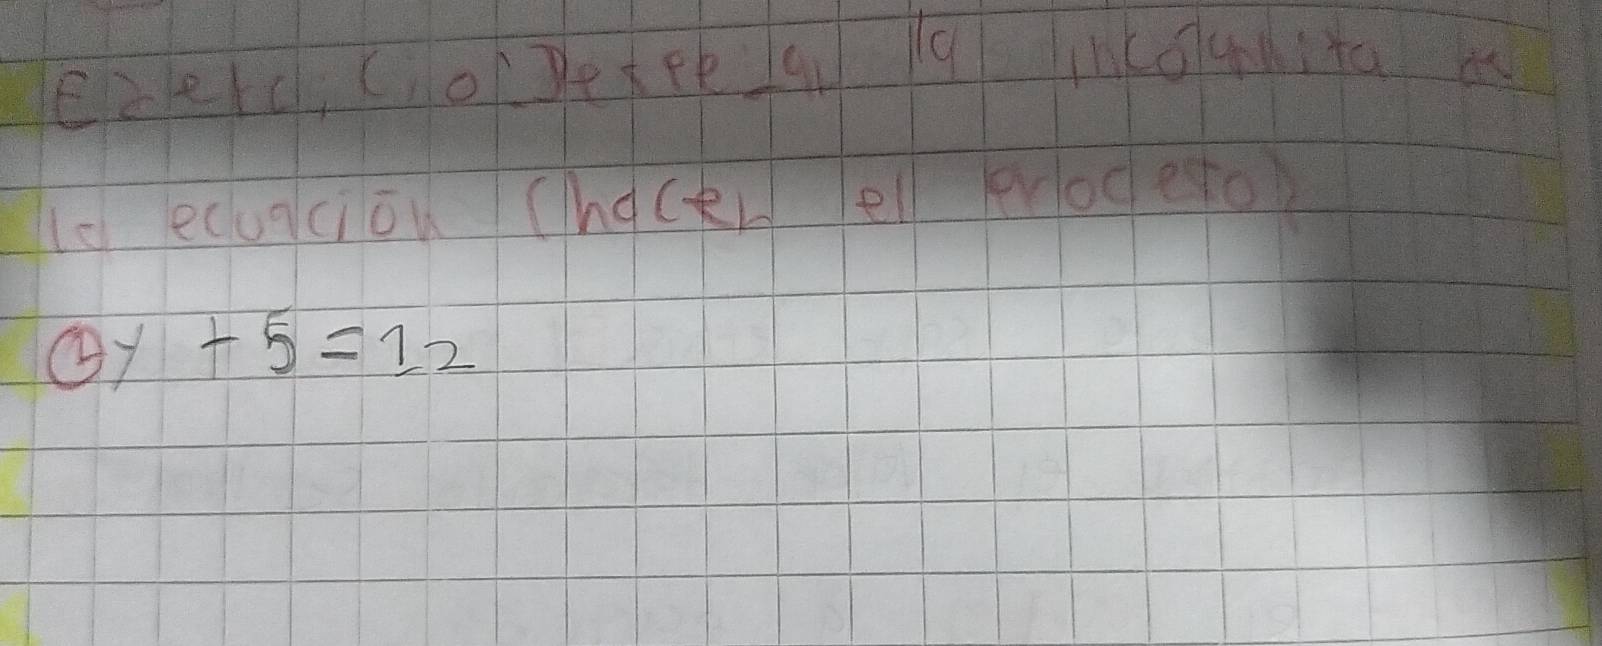 Ejercicio: Despejar la incognita en
la ecuación (hacer el proceso)
① y + 5 = 12